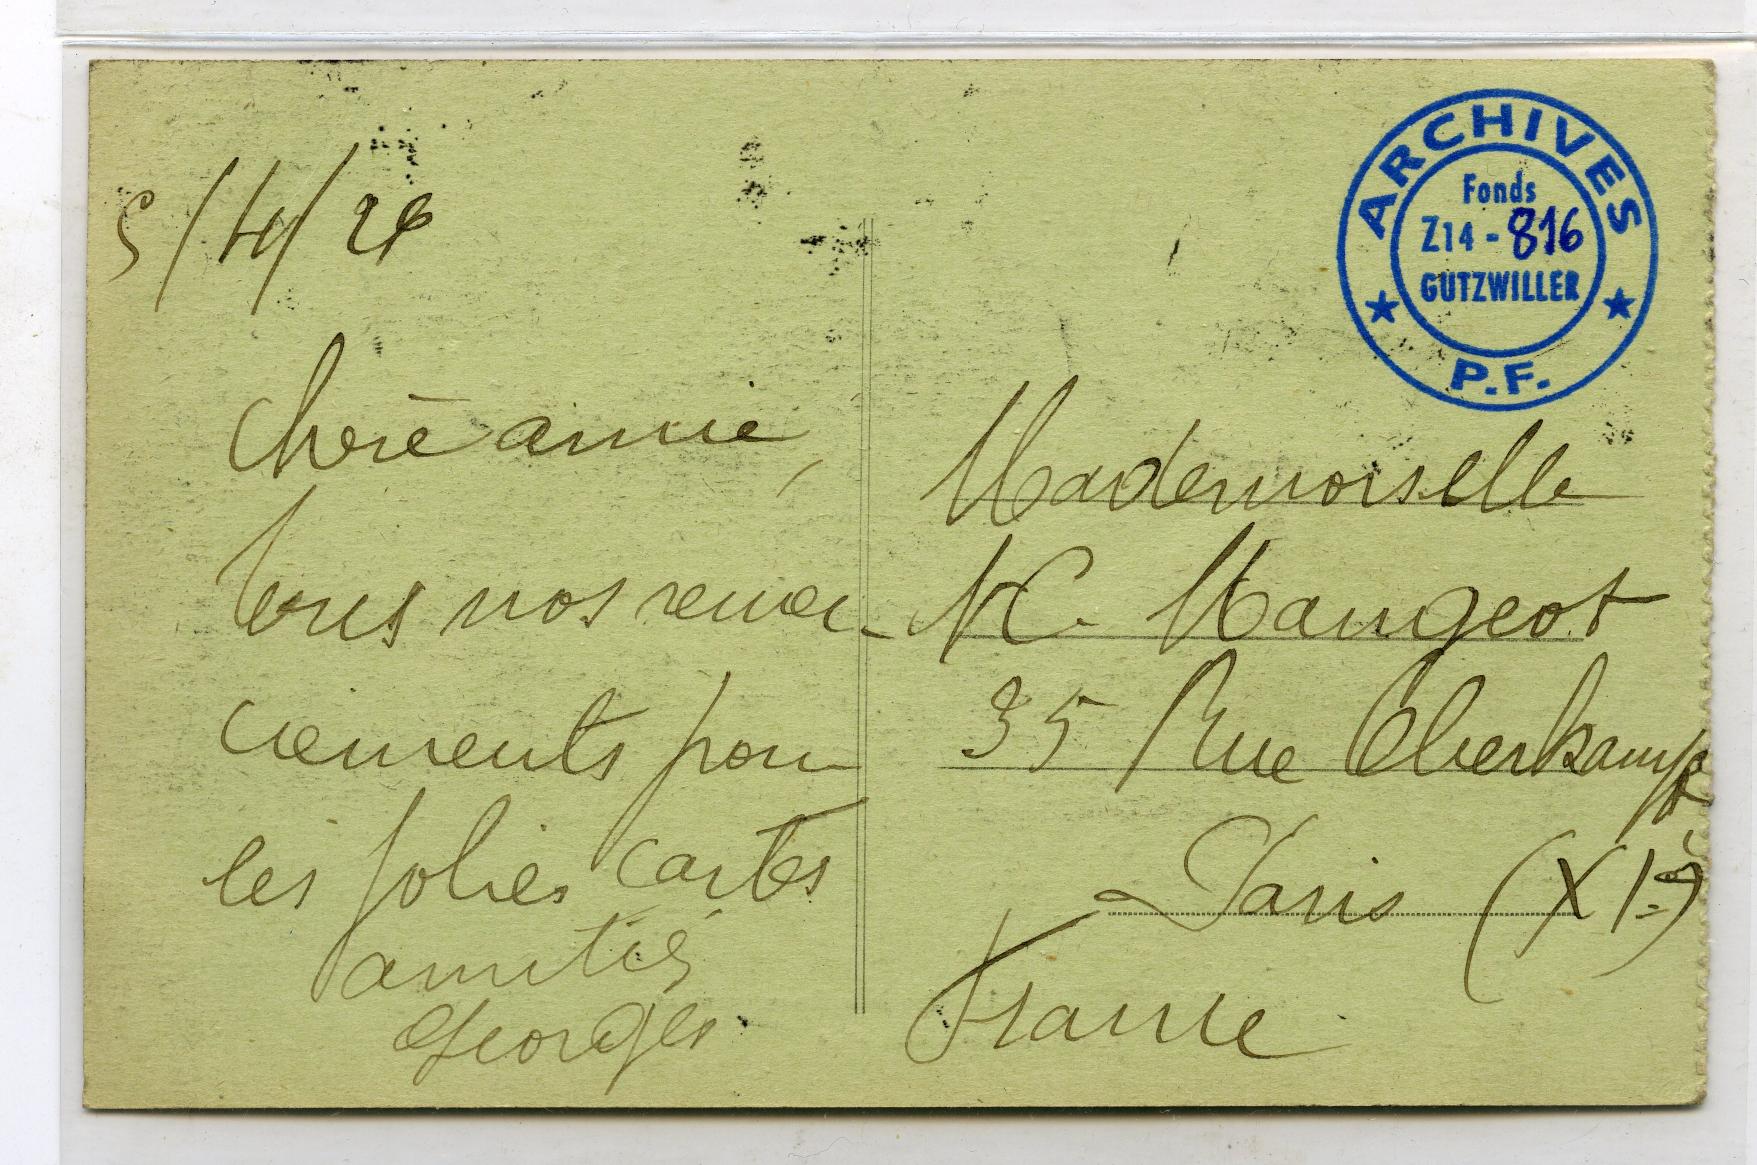 5/4/26
Chère amie,
Tous nos remer-
ciements pour
les jolies cartes
amitiés
Georges
ARCHIVES
Fonds
Z14-816
GUTZWILLER
P.F.
Mademoiselle
M. Mangeot
35 Rue Oberkampf
Paris (XIe)
France